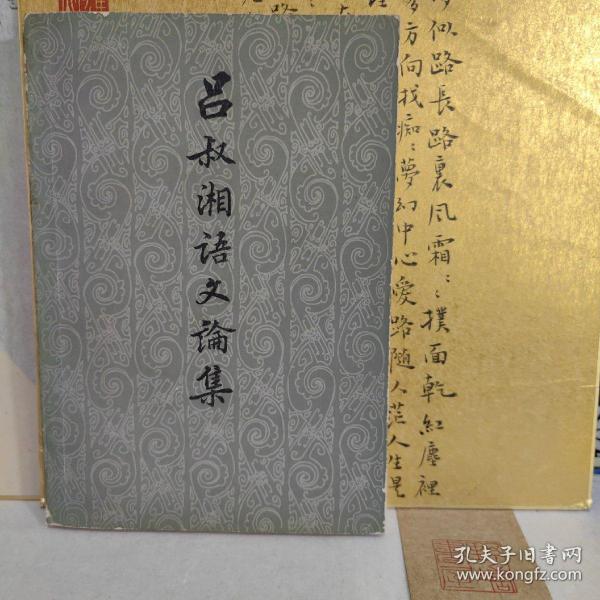 吕叔湘语文論集
似路長路裏風霜：：撲面乾紅塵裡
多方向找痴：夢幻中心愛路隨人茫人生是
孔夫子旧书网
www.kongfz.com